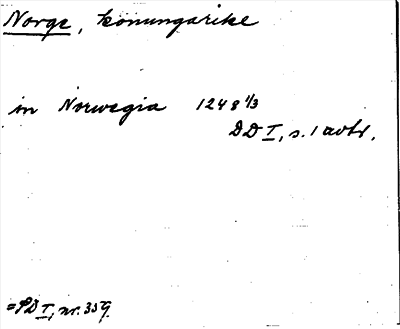 Norge, konungarike
in Norwegia 1248 1/3
DD I, s. 1 avtr.
= SD I, nr. 359.